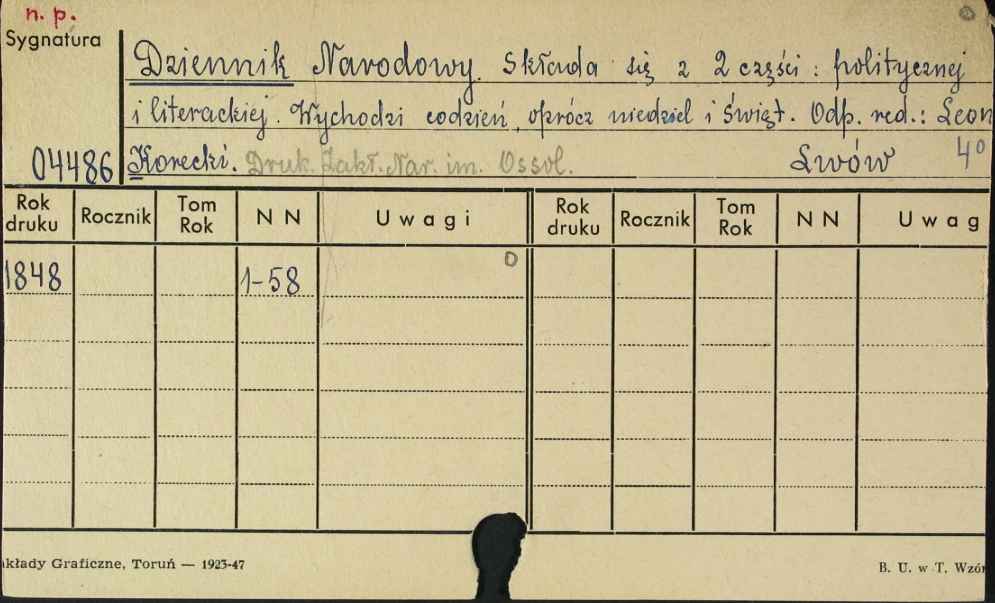 n. p.
Sygnatura
Dziennik Narodowy. Składa się z 2 części: politycznej
i literackiej. Wychodzi codzień, oprócz niedziel i świąt. Odp. red.: Leon
04486 Korecki. Druk. Zakł. Nar. im. Ossol. Lwów 4°
Rok druku Rocznik Tom Rok NN Uwagi Rok druku Rocznik Tom Rok NN Uwag
1848 1-58 0
kłady Graficzne, Toruń — 1923-47 B. U. w T. Wzór